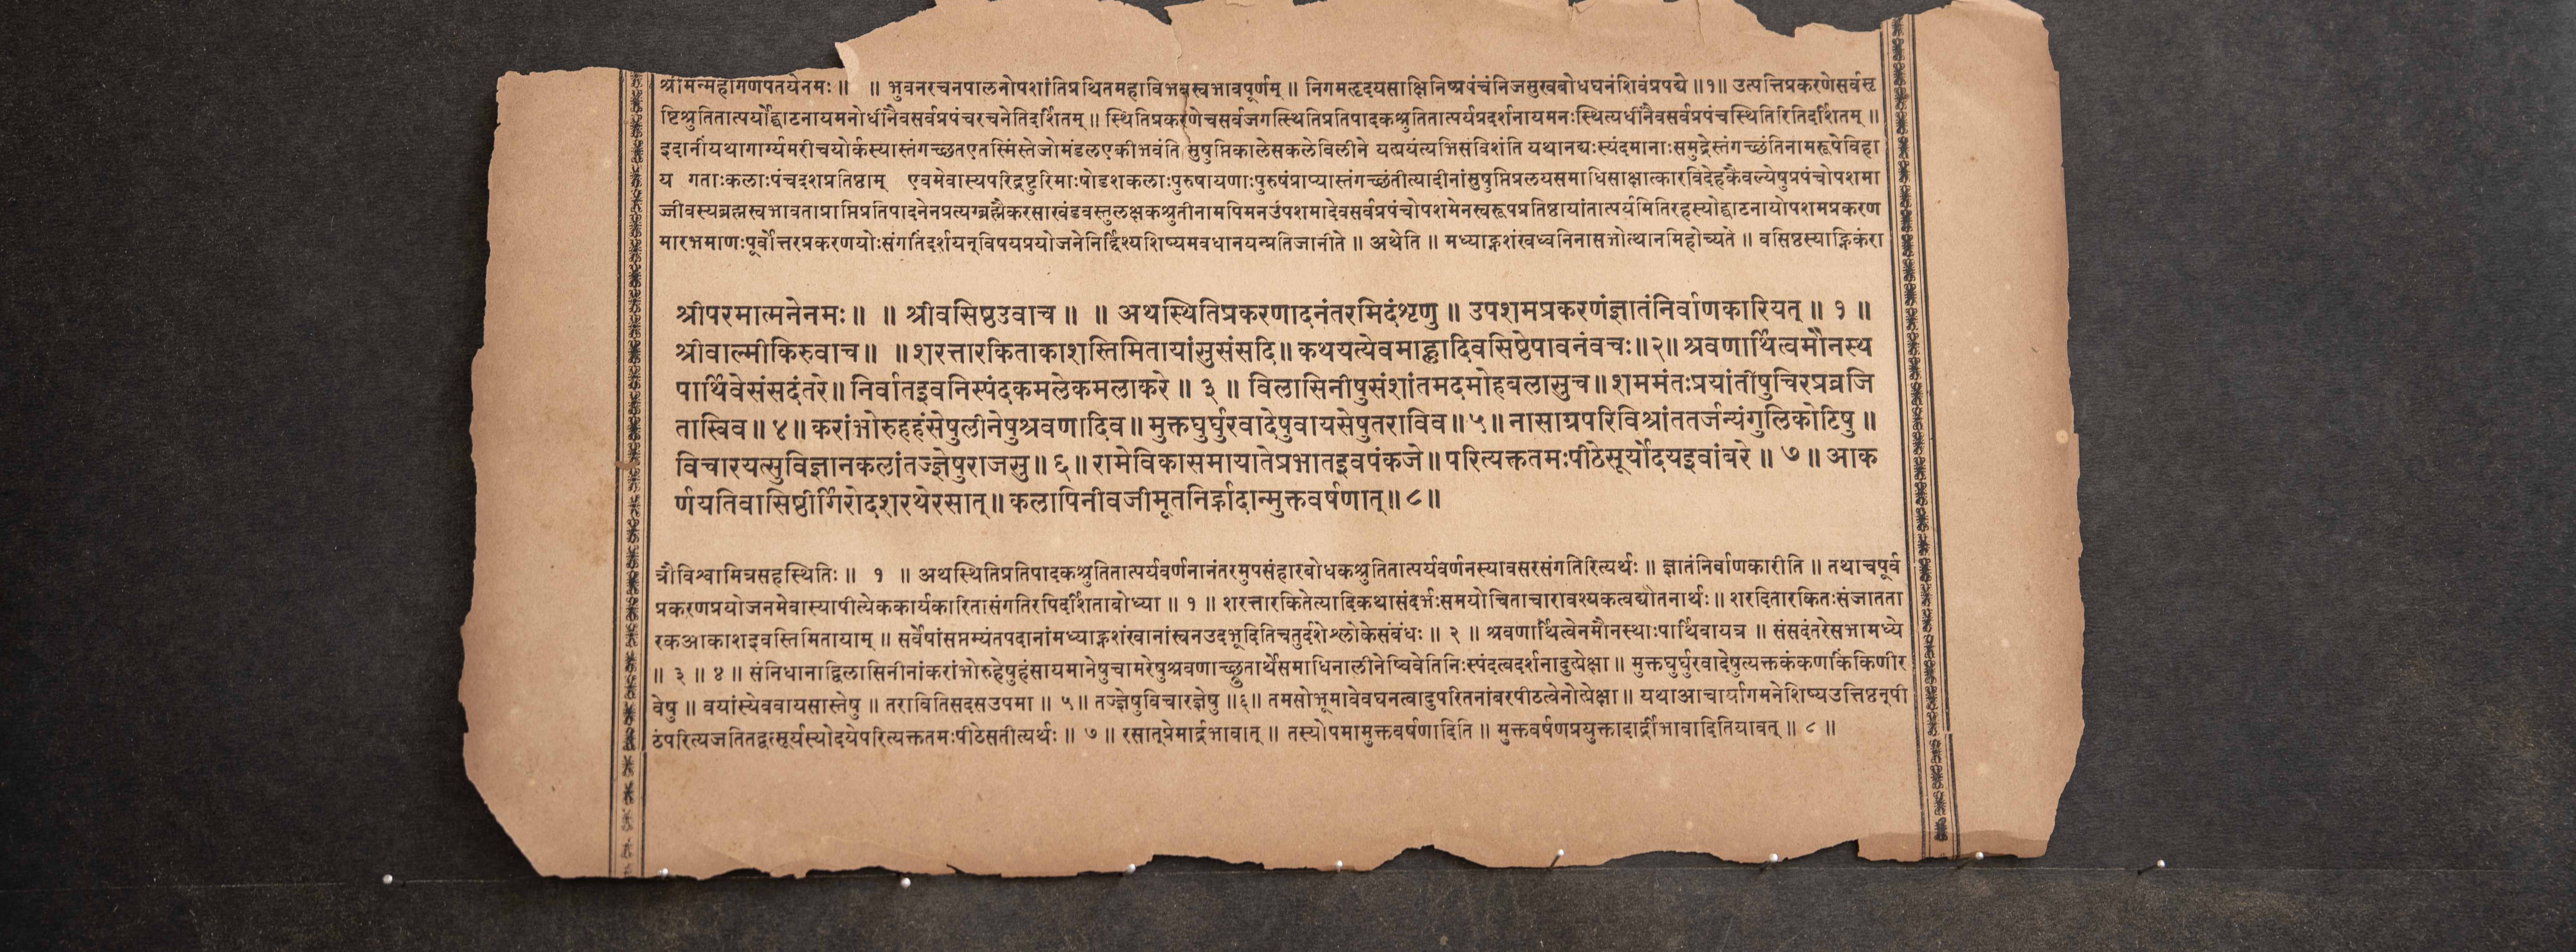 श्रीमन्महागणपतयेनमः ॥ ॥ भुवनरचनपालनोपशांतिप्रथितमहाविभवस्वभावपूर्णम् ॥ निगमहृदयसाक्षिनिष्प्रपंचंनिजसुखबोधघनंशिवंप्रपद्ये ॥१॥ उत्पत्तिप्रकरणेसर्वसृ
ष्टिश्रुतितात्पर्योद्घाटनायमनोधीनैवसर्वप्रपंचरचनेतिदर्शितम् ॥ स्थितिप्रकरणेचसर्वजगत्स्थितिप्रतिपादकश्रुतितात्पर्यप्रदर्शनायमनःस्थित्यधीनैवसर्वप्रपंचस्थितिरितिदर्शितम् ॥
इदानींयथागार्ग्यमरीचयोर्कस्यास्तंगच्छतएतस्मिंस्तेजोमंडलएकीभवंति सुषुप्तिकालेसकलेविलीने यत्प्रयंत्यभिसंविशंति यथानद्यःस्यंदमानाःसमुद्रेस्तंगच्छंतिनामरूपेविहा
य गताःकलाःपंचदशप्रतिष्ठाम् एवमेवास्यपरिद्रष्टुरिमाःषोडशकलाःपुरुषायणाःपुरुषंप्राप्यास्तंगच्छंतीत्यादीनांसुषुप्तिप्रलयसमाधिसाक्षात्कारविदेहकैवल्येषुप्रपंचोपशमा
ज्जीवस्यब्रह्मस्वभावताप्राप्तिप्रतिपादनेनप्रत्यग्ब्रह्मैकरसाखंडवस्तुलक्षकश्रुतीनामपिमनउपशमादेवसर्वप्रपंचोपशमेनस्वरूपप्रतिष्ठायांतात्पर्यमितिरहस्योद्घाटनायोपशमप्रकरण
मारभमाणःपूर्वोत्तरप्रकरणयोःसंगतिंदर्शयन्विषयप्रयोजनेनिर्द्दिश्यशिष्यमवधानयन्प्रतिजानीते ॥ अथेति ॥ मध्याह्नशंखध्वनिनासभोत्थानमिहोच्यते ॥ वसिष्ठस्याह्निकंरा
श्रीपरमात्मनेनमः ॥ ॥ श्रीवसिष्ठउवाच ॥ ॥ अथस्थितिप्रकरणादनंतरमिदंशृणु ॥ उपशमप्रकरणंज्ञातंनिर्वाणकारियत् ॥ १ ॥
श्रीवाल्मीकिरुवाच ॥ ॥ शरत्तारकिताकाशस्तिमितायांसुसंसदि ॥ कथयत्येवमाह्लादिवसिष्ठेपावनंवचः ॥२॥ श्रवणार्थित्वमौनस्थ
पार्थिवेसंसदंतरे ॥ निर्वातइवनिस्पंदकमलेकमलाकरे ॥ ३ ॥ विलासिनीषुसंशांतमदमोहबलासुच ॥ शममंतःप्रयांतीषुचिरप्रव्रजि
तास्विव ॥ ४ ॥ करांभोरुहहंसेषुलीनेषुश्रवणादिव ॥ मुक्तघुर्घुरवादेषुवायसेषुतराविव ॥ ५ ॥ नासाग्रपरिविश्रांततर्जन्यंगुलिकोटिषु ॥
विचारयत्सुविज्ञानकलांतज्ज्ञेषुराजसु ॥ ६ ॥ रामेविकासमायातेप्रभातइवपंकजे ॥ परित्यक्ततमःपीठेसूर्योदयइवांबरे ॥ ७ ॥ आक
र्णयतिवासिष्ठीर्गिरोदशरथेरसात् ॥ कलापिनीवजीमूतनिर्ह्रादान्मुक्तवर्षणात् ॥ ८ ॥
त्रौविश्वामित्रसहस्थितिः ॥ १ ॥ अथस्थितिप्रतिपादकश्रुतितात्पर्यवर्णनानंतरमुपसंहारबोधकश्रुतितात्पर्यवर्णनस्यावसरसंगतिरित्यर्थः ॥ ज्ञातंनिर्वाणकारीति ॥ तथाचपूर्व
प्रकरणप्रयोजनमेवास्यापीत्येककार्यकारितासंगतिरपिदर्शिताबोध्या ॥ १ ॥ शरत्तारकितेत्यादिकथासंदर्भःसमयोचिताचारावश्यकत्वद्योतनार्थः ॥ शरदितारकितःसंजातता
रकआकाशइवस्तिमितायाम् ॥ सर्वेषांसप्तम्यंतपदानांमध्याह्नशंखानांस्वनउदभूदितिचतुर्दशेश्लोकेसंबंधः ॥ २ ॥ श्रवणार्थित्वेनमौनस्थाःपार्थिवायत्र ॥ संसदंतरेसभामध्ये
॥ ३ ॥ ४ ॥ संनिधानाद्विलासिनीनांकरांभोरुहेषुहंसायमानेषुचामरेषुश्रवणाच्छ्रुतार्थेसमाधिनालीनेष्विवेतिनिःस्पंदत्वदर्शनादुत्प्रेक्षा ॥ मुक्तघुर्घुरवादेषुत्यक्तकंकणकिंकिणीर
वेषु ॥ वयांस्येववायसास्तेषु ॥ तरावितिसदसउपमा ॥ ५ ॥ तज्ज्ञेषुविचारज्ञेषु ॥६॥ तमसोभूमावेवघनत्वादुपरितनांबरपीठत्वेनोत्प्रेक्षा ॥ यथाआचार्यागमनेशिष्यउत्तिष्ठन्पी
ठंपरित्यजतितद्वत्सूर्यस्योदयेपरित्यक्ततमःपीठेसतीत्यर्थः ॥ ७ ॥ रसात्प्रेमार्द्रभावात् ॥ तस्योपमामुक्तवर्षणादिति ॥ मुक्तवर्षणप्रयुक्तादार्द्रीभावादितियावत् ॥ ८ ॥